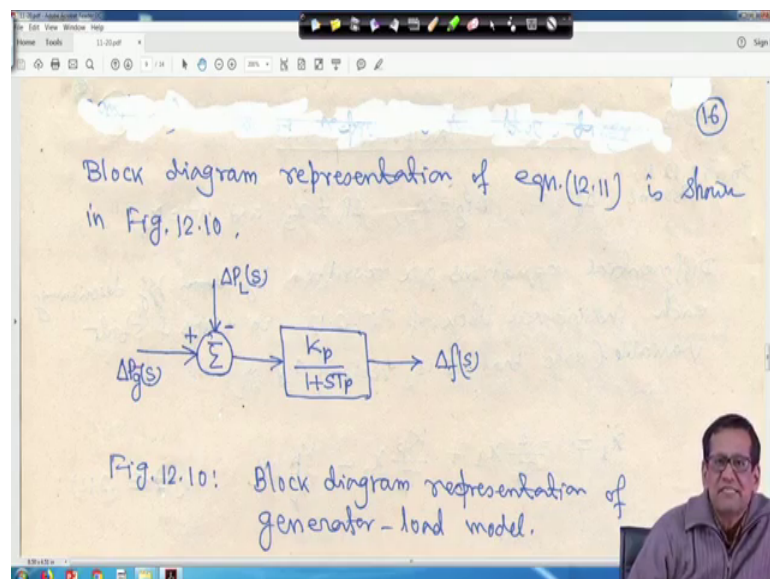 11-20.pdf - Adobe Acrobat Reader DC
File Edit View Window Help
Home Tools 11-20.pdf × Sign
16
Block diagram representation of eqn.(12.11) is shown
in Fig. 12.10.
ΔPL(s)
+ -
ΔPg(s) Σ Kp Δf(s)
1+STp
Fig. 12.10: Block diagram representation of
generator-load model.